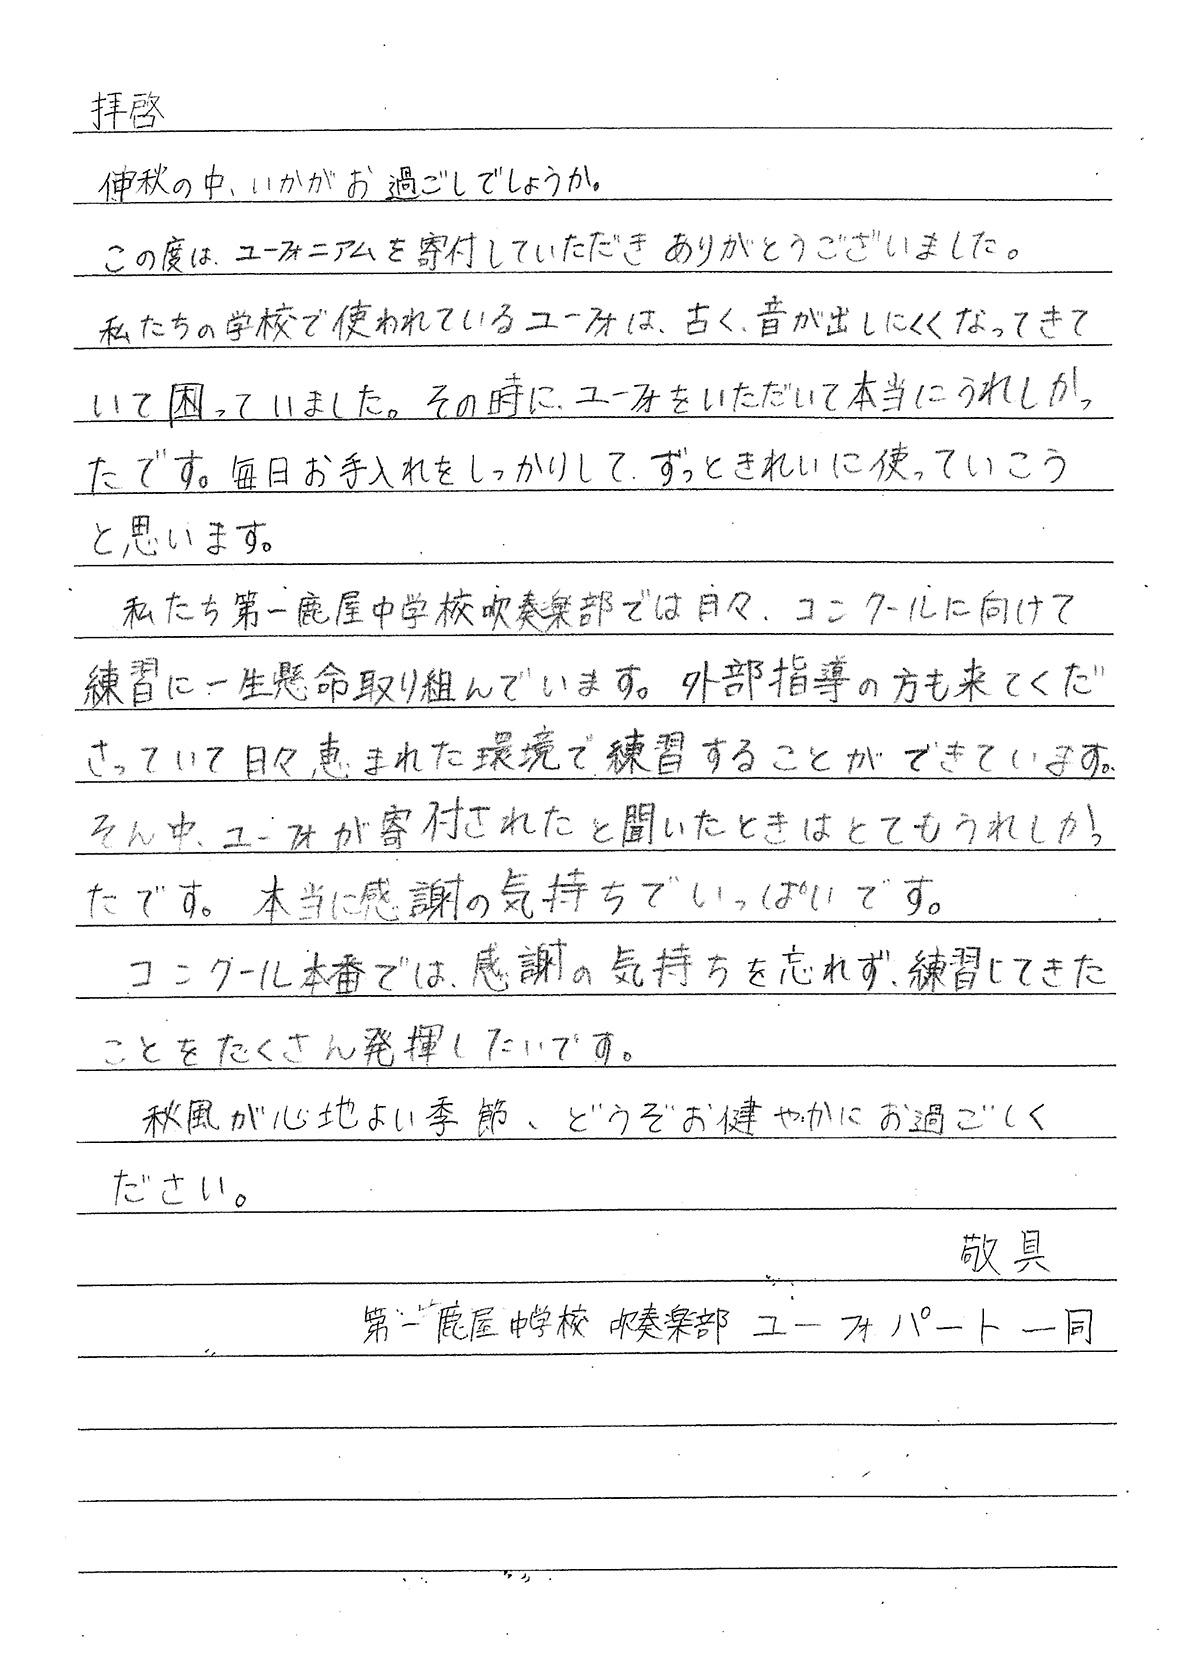 拝啓
仲秋の中、いかがお過ごしでしょうか。
この度は、ユーフォニアムを寄付していただきありがとうございました。
私たちの学校で使われているユーフォは、古く、音が出しにくくなってきて
いて困っていました。その時に、ユーフォをいただいて本当にうれしかっ
たです。毎日お手入れをしっかりして、ずっときれいに使っていこう
と思います。
私たち第一鹿屋中学校吹奏楽部では日々、コンクールに向けて
練習に一生懸命取り組んでいます。外部指導の方も来てくだ
さっていて日々恵まれた環境で練習することができています。
そん中、ユーフォが寄付されたと聞いたときはとてもうれしかっ
たです。本当に感謝の気持ちでいっぱいです。
コンクール本番では、感謝の気持ちを忘れず、練習してきた
ことをたくさん発揮したいです。
秋風が心地よい季節、どうぞお健やかにお過ごしく
ださい。
敬具
第一鹿屋中学校 吹奏楽部 ユーフォパート一同